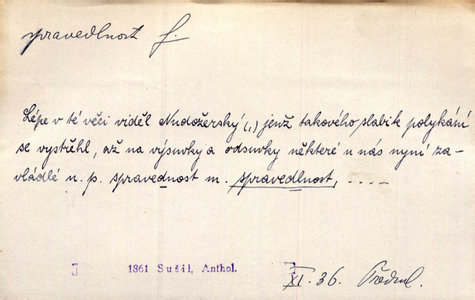 spravedlnost f.
Lépe v té věci viděl Nudožerský (,) jenž takového slabik polykání
se vystřehl, až na výsuvky a odsuvky některé u nás nyní za-
vládlé n. p. spravednost m. spravedlnost, . . . .
1861 Sušil, Anthol.
XI. 36. Předml.